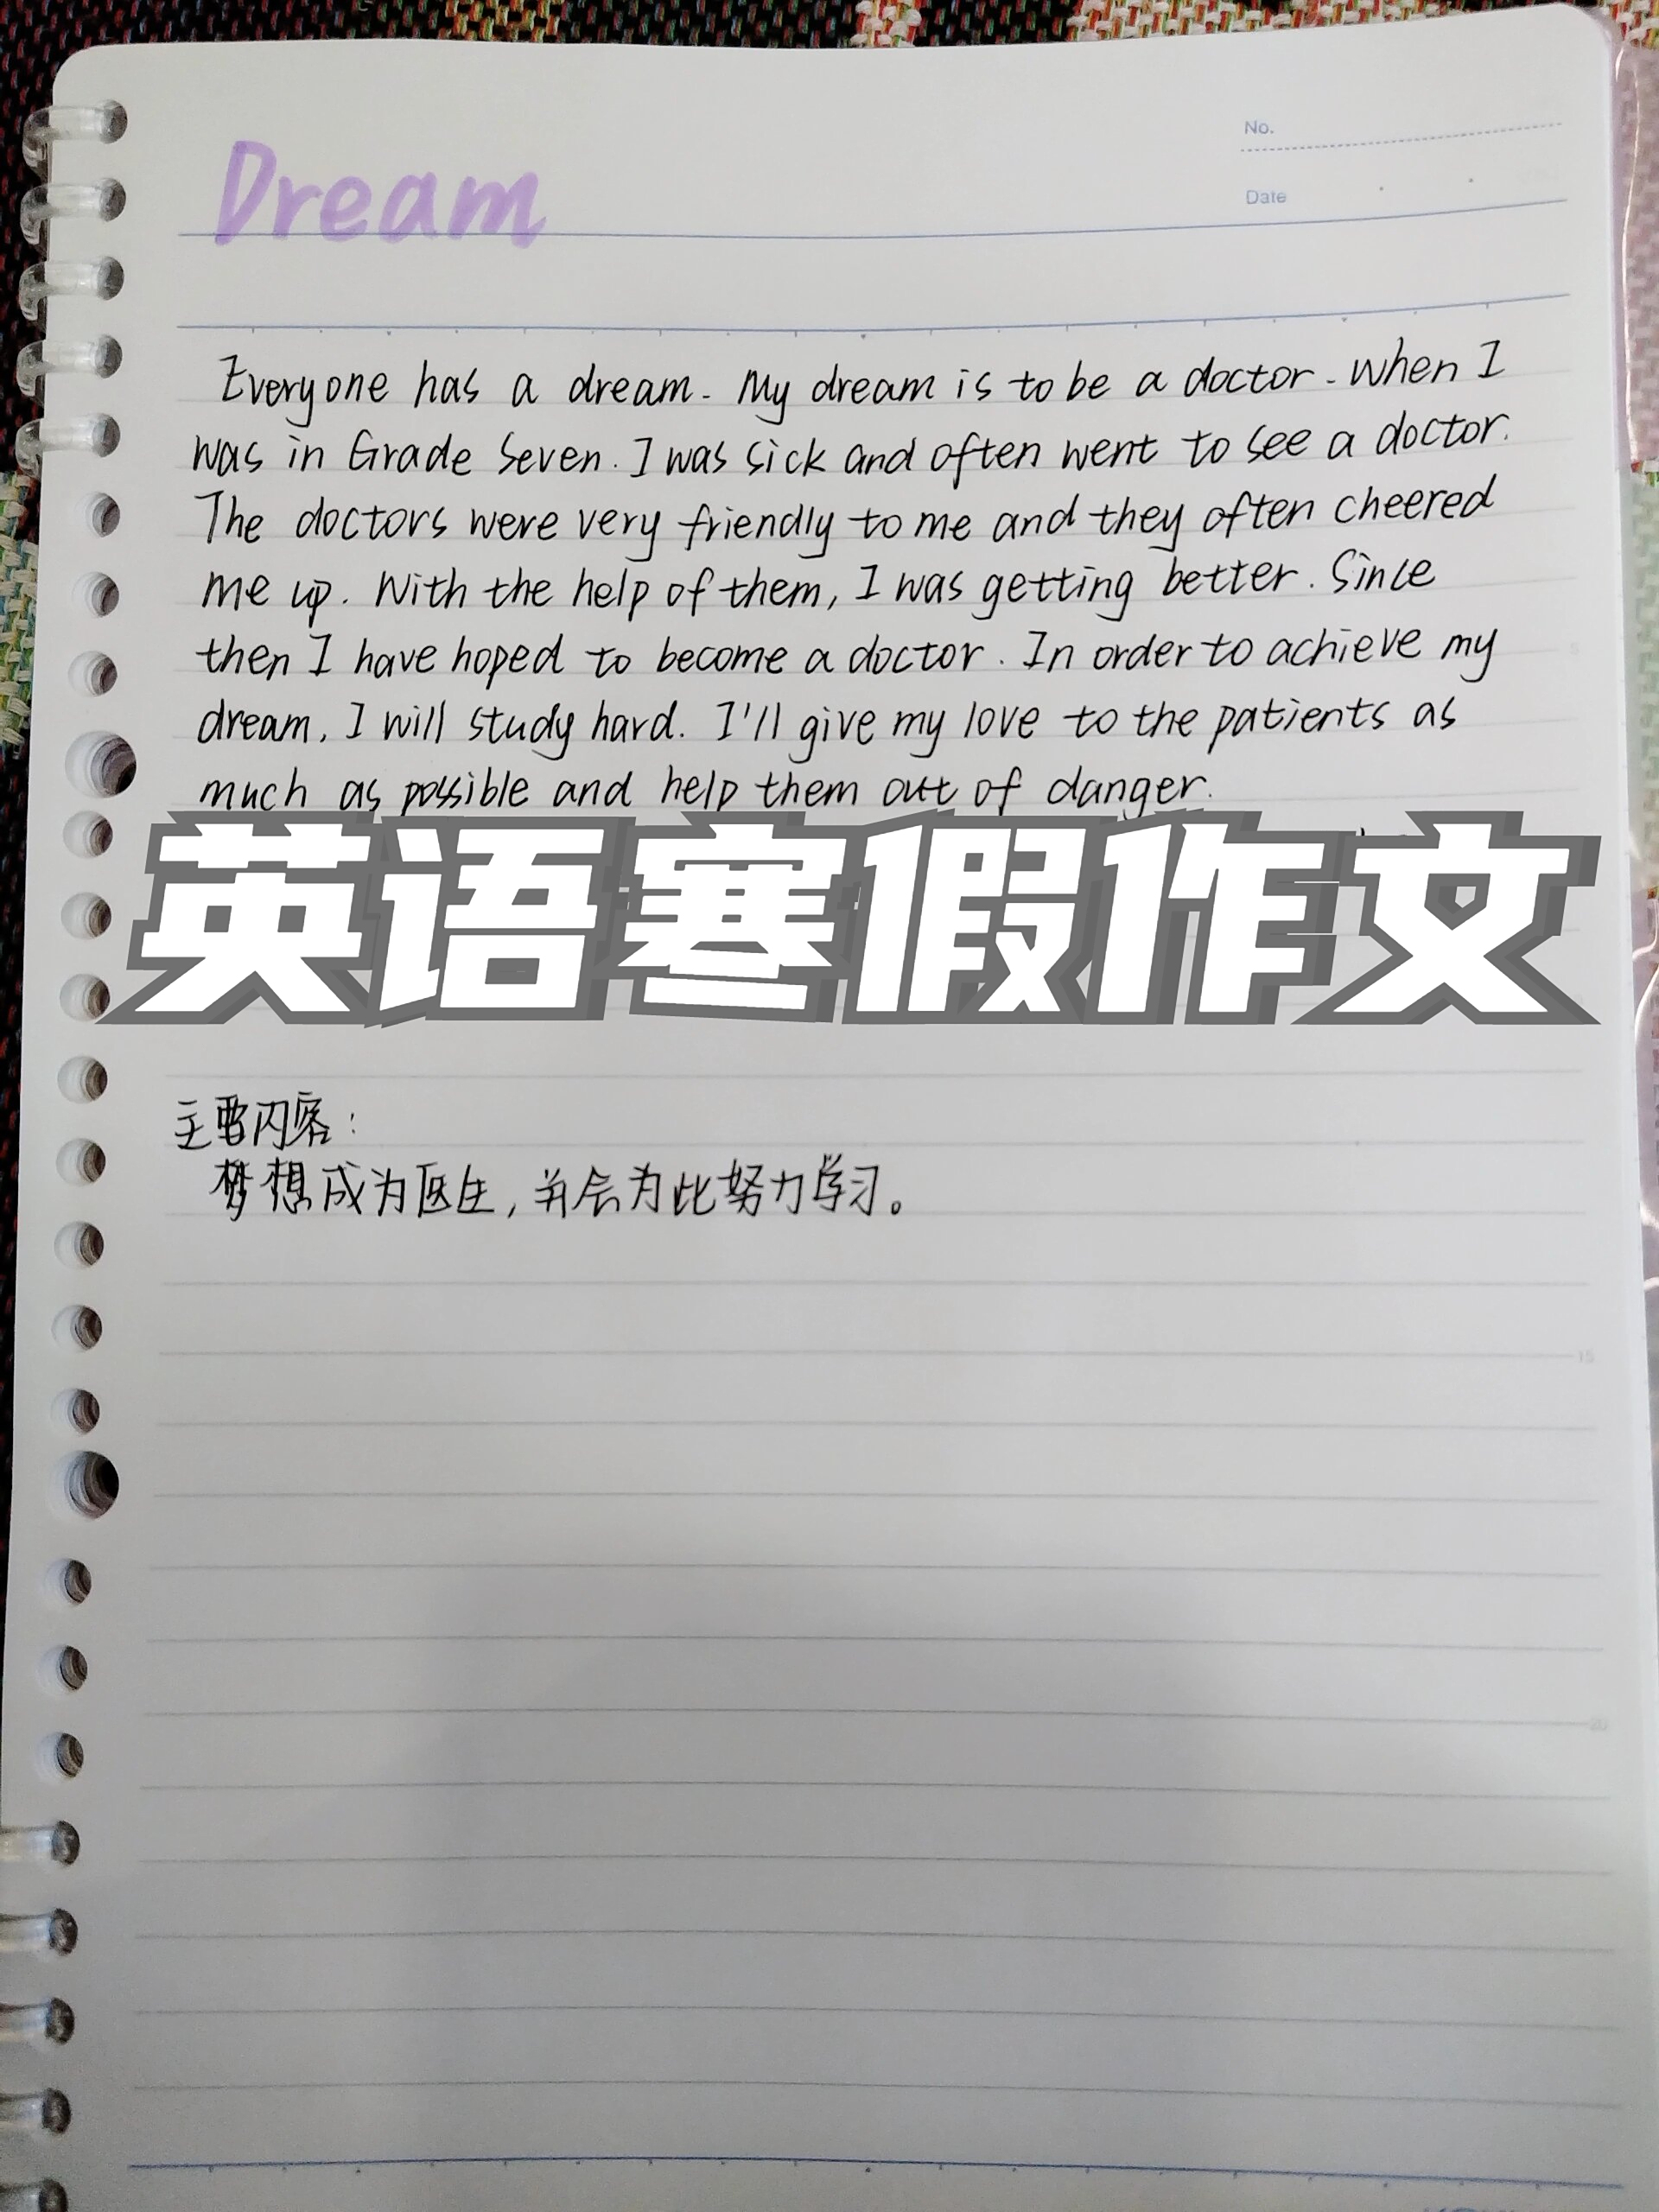 No.
Date
Dream
Everyone has a dream. My dream is to be a doctor. When I
was in Grade Seven. I was sick and often went to see a doctor.
The doctors were very friendly to me and they often cheered
me up. With the help of them, I was getting better. Since
then I have hoped to become a doctor. In order to achieve my
dream, I will study hard. I'll give my love to the patients as
much as possible and help them out of danger.
英语寒假作文
主要内容:
梦想成为医生,并会为此努力学习。
15
20